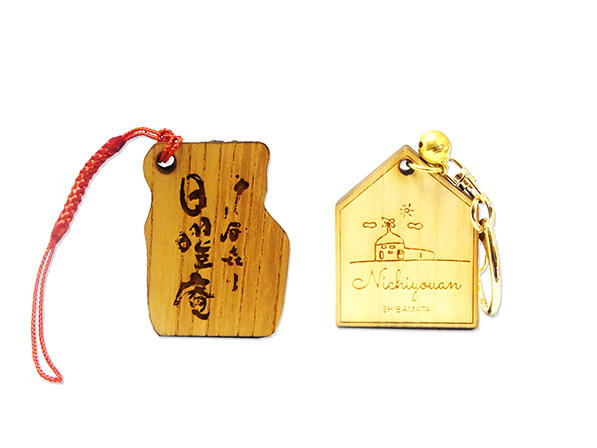 日曜庵
Nichiyouan
SHIBAMATA